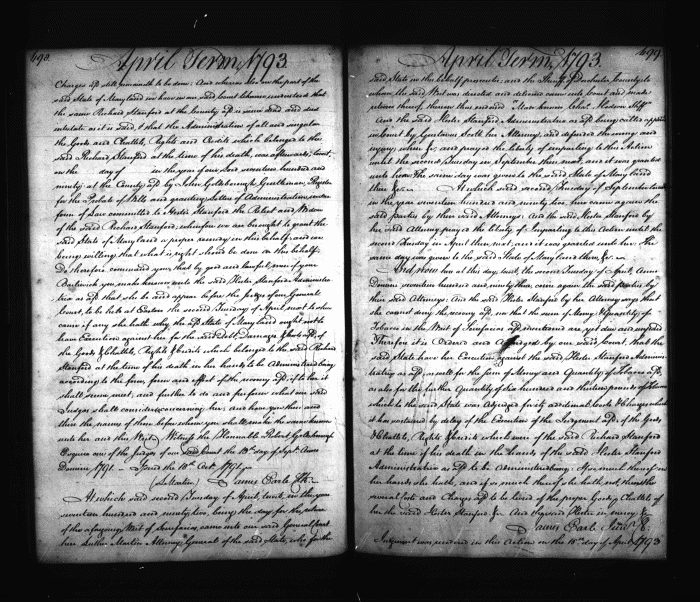 698.
April Term, 1793.
Charges afd. still remaineth to be done: And whereas also on the part of the
said State of Maryland in our said Court it has been understood that
the same Richard Stanford at the County afd. is since dead and died
intestate as it is said, & that the Administration of all and singular
the Goods and Chattels, Rights and Credits which belonged to the
said Richard Stanford at the time of his death, was afterwards, to wit,
on the day of in the year of our Lord seventeen hundred and
ninety at the County afd. by John Goldsborough Gentleman, Register
for the Probate of Wills and granting Letters of Administration, in due
form of Law committed to Hester Stanford the Relict and Widow
of the said Richard Stanford, wherefore we are brought to grant the
said State of Maryland a proper remedy in this behalf: and we
being willing that what is right should be done on this behalf,
Do therefore command you, that by good and lawful men of your
Bailiwick you make known unto the said Hester Stanford Administra-
trix as afd. that she be and appear before the Judges of our General
Court, to be held at Easton the second Tuesday of April next to shew
cause if any she hath why the afd. State of Maryland ought not to
have Execution against her for the said Debt, Damages & Costs afd. of
the Goods & Chattels, Rights & Credits which belonged to the said Richard
Stanford at the time of his death in her hands to be Administered being
according to the form and effect of the recovery afd. if to her it
shall seem meet, and further to do and perform what our said
Judges shall consider concerning her; and have you there and
then the names of those before whom you shall make the same known
unto her and this Writ. Witness the Honorable Robert Goldsborough
Esquire one of the Judges of our said Court the 13th day of Septr. Anno
Domini 1791. Issued the 18th Octr. 1791.
(L. Martin) James Earle Clk.
At which said second Tuesday of April, to wit, in the year
seventeen hundred and ninety two, being the day for the return
of the aforegoing Writ of Scirefacias, came into our said General Court
here Luther Martin Attorney General of the said State, who for the
699.
April Term, 1793.
said State in this behalf prosecutes; and the Sheriff of Dorchester County to
whom the said Writ was directed and delivered came into Court and made
return thereof, thereon thus endorsed "Made known
And the said Hester Stanford Administratrix as afd. being called appears
in Court by Gustavus Scott her Attorney, and defends the wrong and
injury when &c. and prayed the liberty of imparling to this Action
until the second Tuesday in September then next, and it was granted
unto her, The same day was given to the said State of Maryland
then &c. At which said second Tuesday of September to wit
in the year seventeen hundred and ninety two, here came again the
said parties by their said Attornies: And the said Hester Stanford by
her said Attorney pray'd the liberty of Imparling to this Action until the
second Tuesday in April then next, and it was granted unto her: The
same day was given to the said State of Maryland then, &c.
And now here at this day, to wit, the second Tuesday of April, Anno
Domini seventeen hundred and ninety three, come again the said parties by
their said Attornies: And the said Hester Stanford by her Attorney says that
she cannot deny the recovery afd. nor that the sum of Money & Quantity of
Tobacco in the Writ of Scirefacias afd. mentioned are yet due and unpaid
Therefore it is Order'd and Adjudged by our said Court, that the
said State have her Execution against the said Hester Stanford Adminis-
tratrix as afd. as well for the sum of Money and Quantity of Tobacco afd.
as also for the further Quantity of six hundred and thirteen pounds of Tobacco
which to the said State was Adjudged for its additional Costs & Charges which
it has sustained by delay of the Execution of the Judgement afd. of the Goods
& Chattels, Rights & Credits which were of the said Richard Stanford
at the time of his death in the hands of the said Hester Stanford
Administratrix as afd. to be Administered being; if so much thereof in
her hands she hath, and if so much thereof she hath not, then the
several Costs and Charges afd. to be levied of the proper Goods & Chattels of
her the said Hester Stanford &c. And the said Hester in mercy &c.
James Earle
Judgment was rendered in this action on the 15th day of April 1793